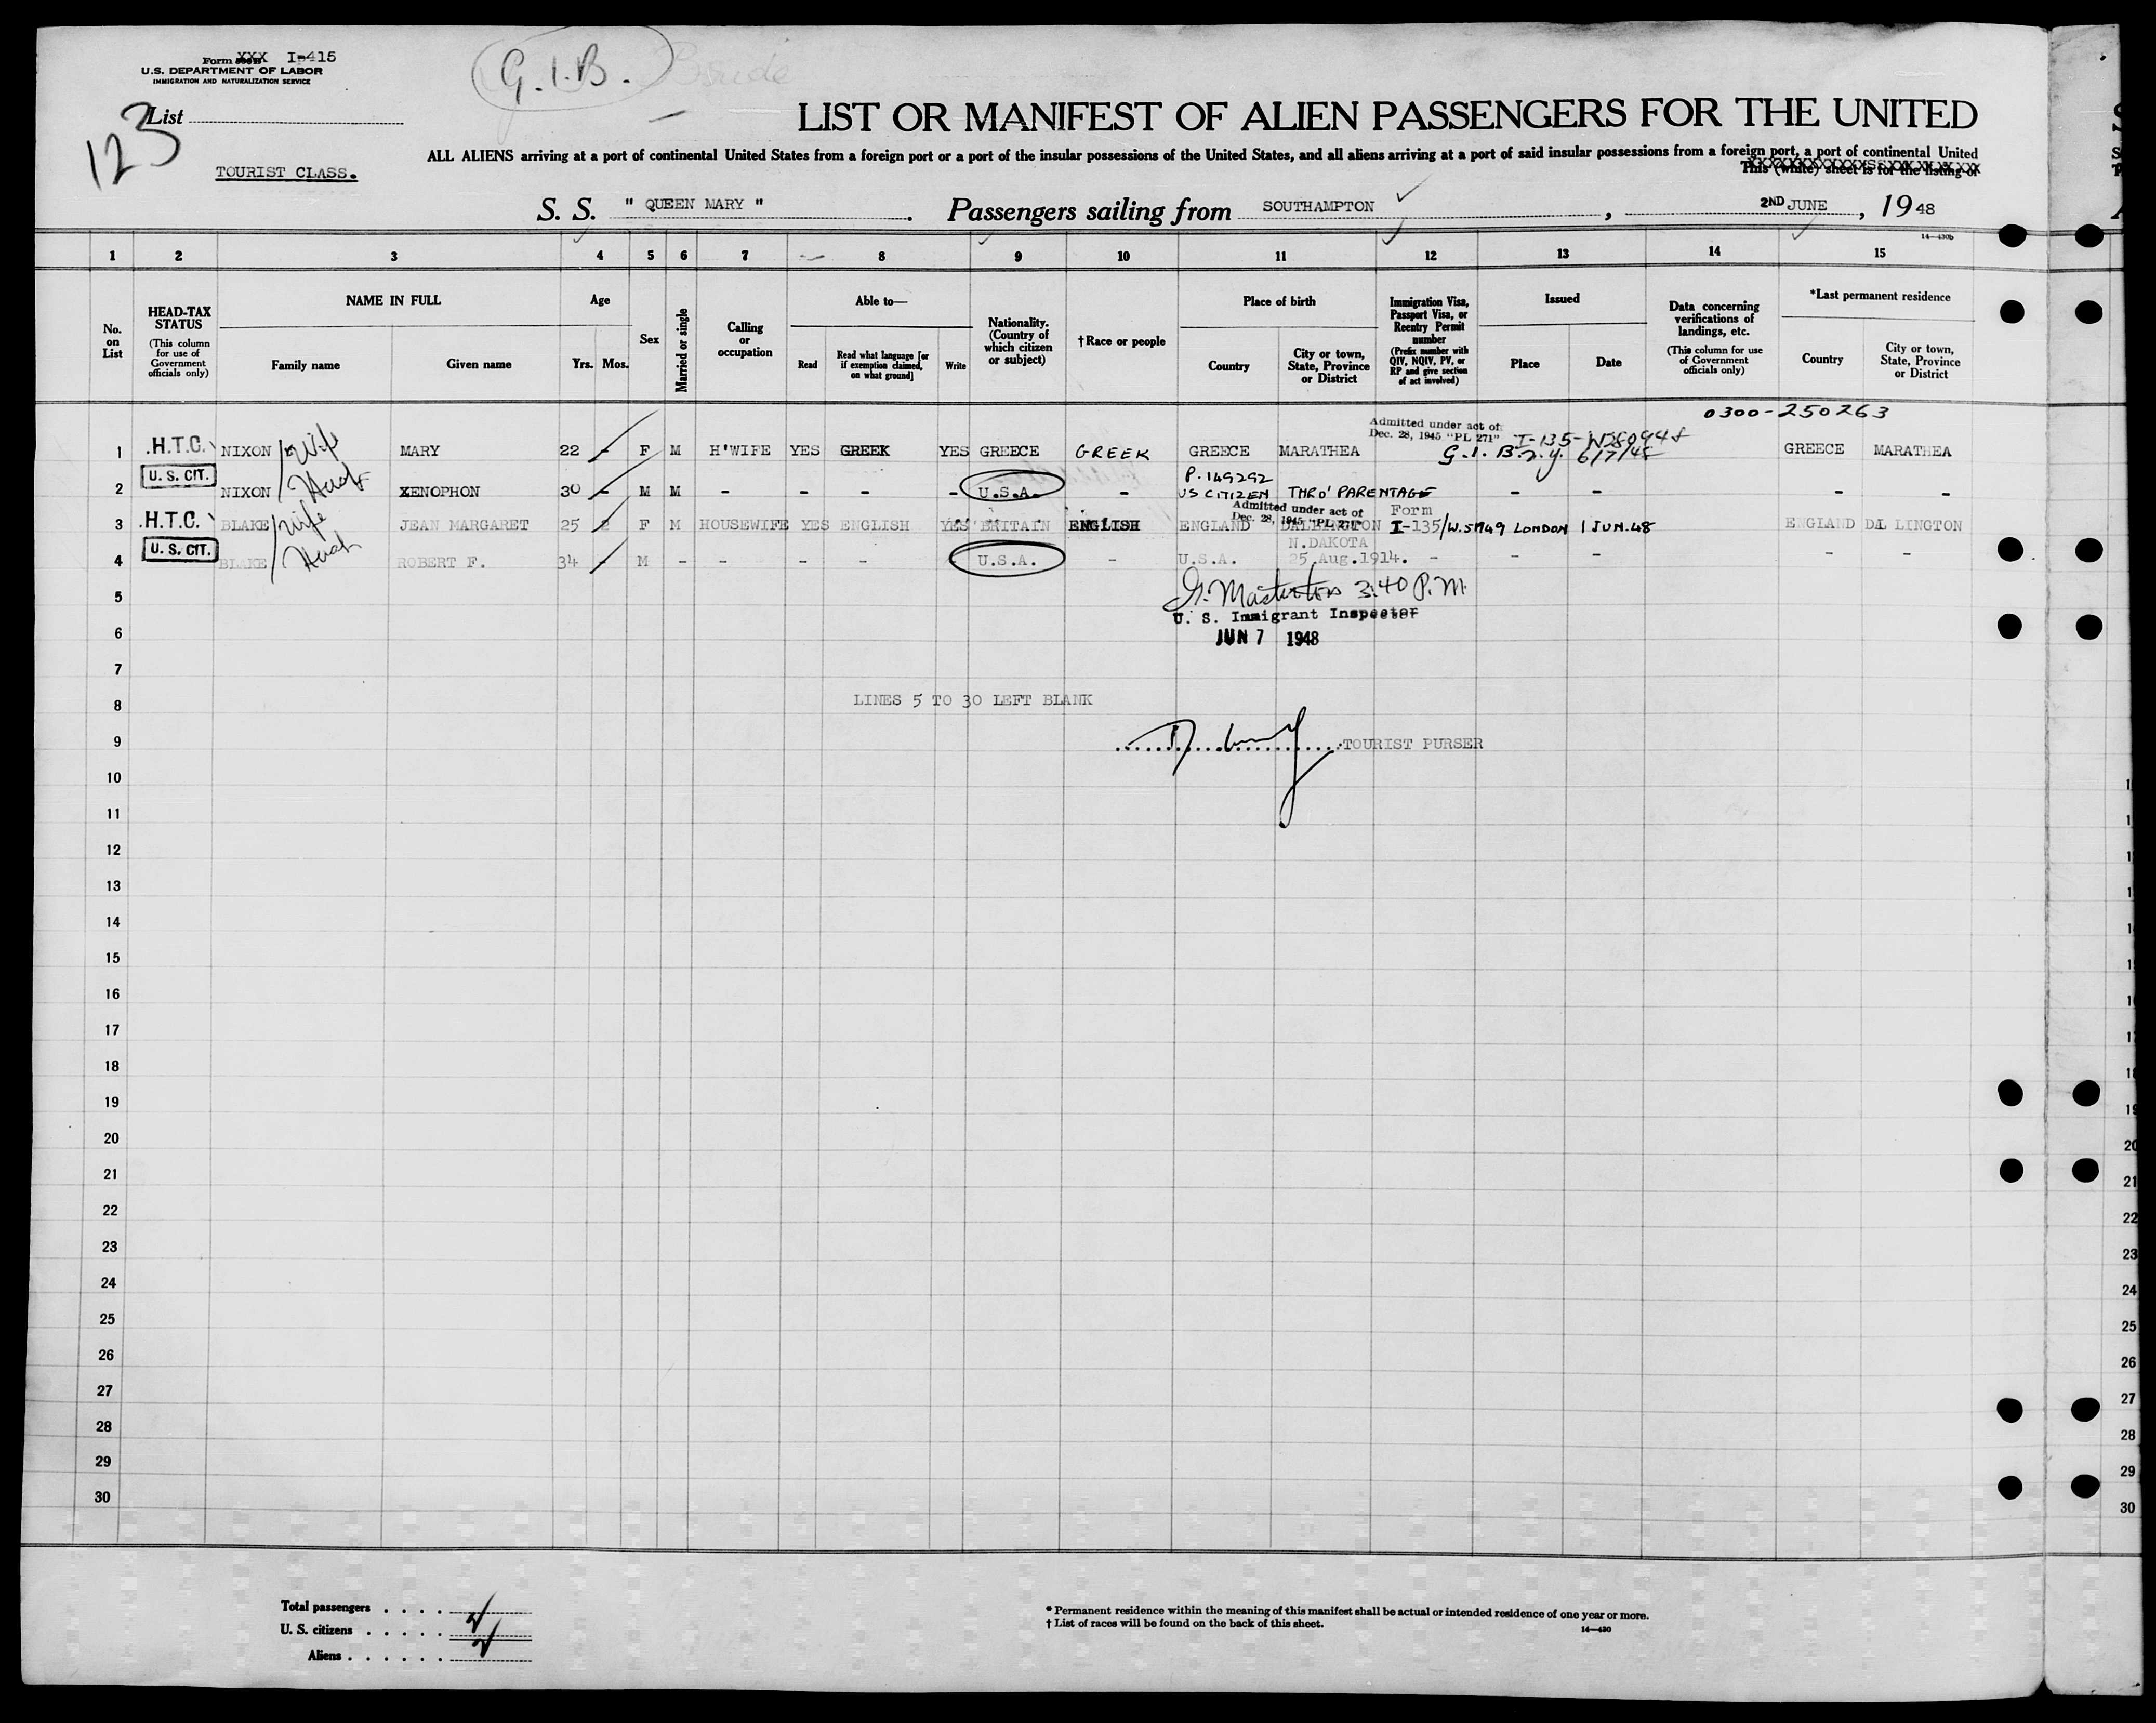 Form XXX I-415
U.S. DEPARTMENT OF LABOR
IMMIGRATION AND NATURALIZATION SERVICE
G.I.B. Bride
List
123
TOURIST CLASS.
LIST OR MANIFEST OF ALIEN PASSENGERS FOR THE UNITED
ALL ALIENS arriving at a port of continental United States from a foreign port or a port of the insular possessions of the United States, and all aliens arriving at a port of said insular possessions from a foreign port, a port of continental United
This (white) sheet is for the listing of
S. S. " QUEEN MARY " . Passengers sailing from SOUTHAMPTON , 2ND JUNE , 1948
14—430b
1 2 3 4 5 6 7 8 9 10 11 12 13 14 15
No. on List
HEAD-TAX STATUS
(This column for use of Government officials only)
NAME IN FULL
Family name
Given name
Age
Yrs. Mos.
Sex
Married or single
Calling or occupation
Able to—
Read
Read what language [or if exemption claimed, on what ground]
Write
Nationality. (Country of which citizen or subject)
†Race or people
Place of birth
Country
City or town, State, Province or District
Immigration Visa, Passport Visa, or Reentry Permit number
(Prefix number with QIV, NQIV, PV, or RP and give section of act involved)
Issued
Place
Date
Data concerning verifications of landings, etc.
(This column for use of Government officials only)
*Last permanent residence
Country
City or town, State, Province or District
0300-250263
Admitted under act of
Dec. 28, 1945 "PL 271"
1 .H.T.C. NIXON /Wife MARY 22 - F M H'WIFE YES GREEK YES GREECE GREEK GREECE MARATHEA G.I.B. N.Y. 6/7/48 GREECE MARATHEA
P.149292
2 U. S. CIT. NIXON XENOPHON 30 - M M - - - - U.S.A. - US CITIZEN THRO' PARENTAGE - - - -
Admitted under act of
Dec. 28, 1945 "PL 271"
Form
3 .H.T.C. BLAKE /Wife JEAN MARGARET 25 F M HOUSEWIFE YES ENGLISH YES BRITAIN ENGLISH ENGLAND I-135/W.5949 LONDON 1 JUN.48 ENGLAND
N.DAKOTA
4 U. S. CIT. BLAKE ROBERT F. 34 - M - - - - - U.S.A. - U.S.A. 25 Aug.1914. - - - - -
3:40 P.M.
5
U. S. Immigrant Inspector
6 JUN 7 1948
7
8 LINES 5 TO 30 LEFT BLANK
9 TOURIST PURSER
10
11
12
13
14
15
16
17
18
19
20
21
22
23
24
25
26
27
28
29
30
Total passengers
U. S. citizens
Aliens
* Permanent residence within the meaning of this manifest shall be actual or intended residence of one year or more.
† List of races will be found on the back of this sheet.
14—430